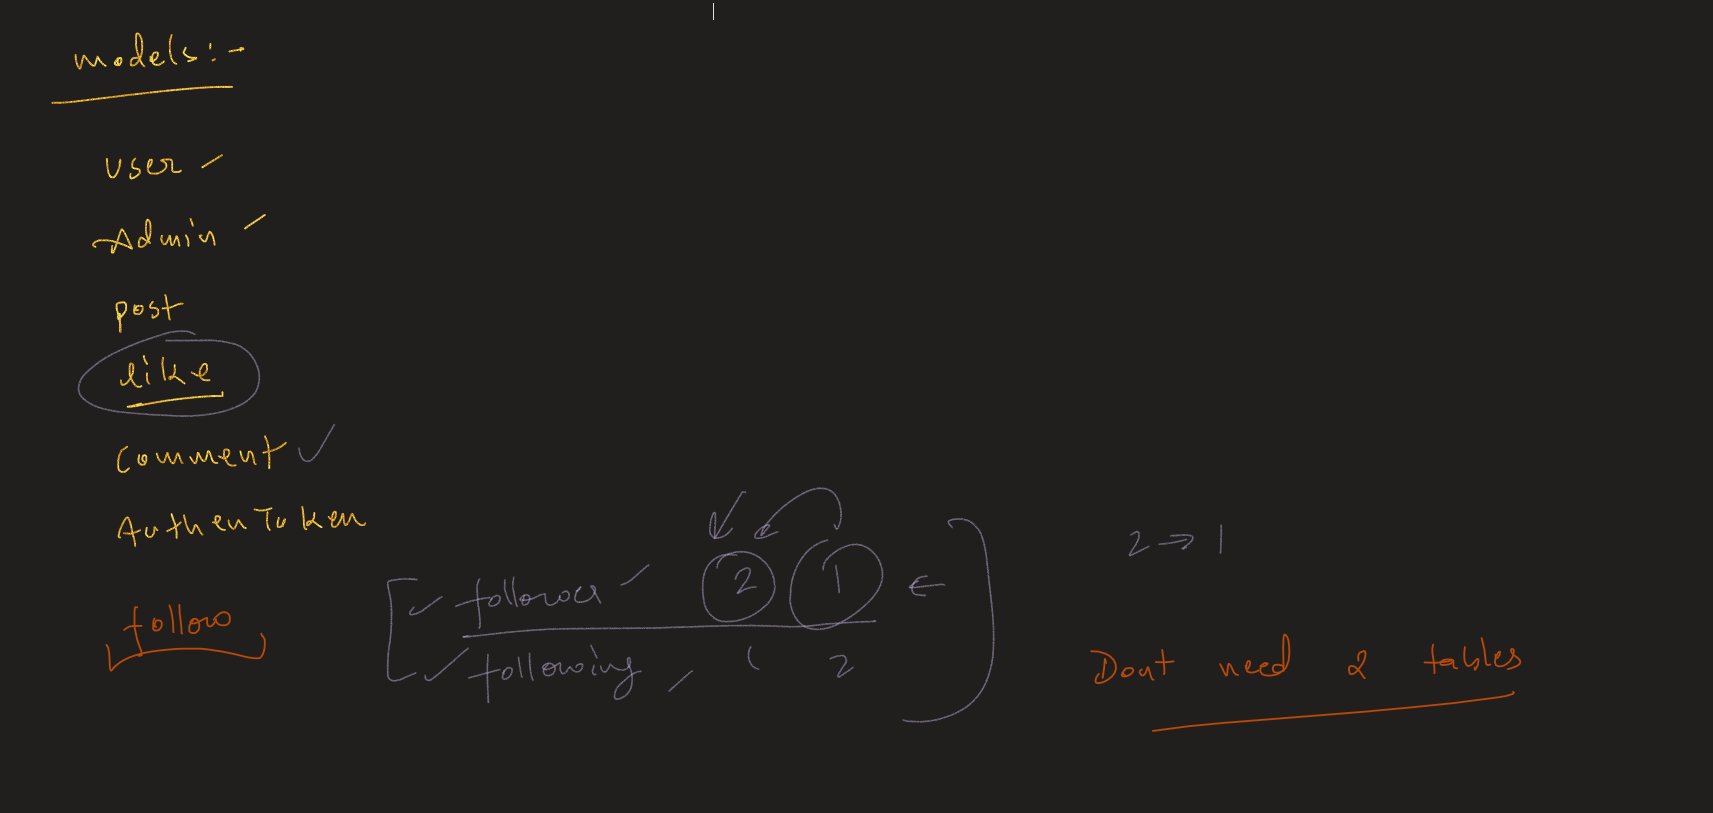 models:-
User
Admin
post
like
Comment
AuthenToken
follow
follower 2 1
following, 1 2
2 → 1
Dont need 2 tables